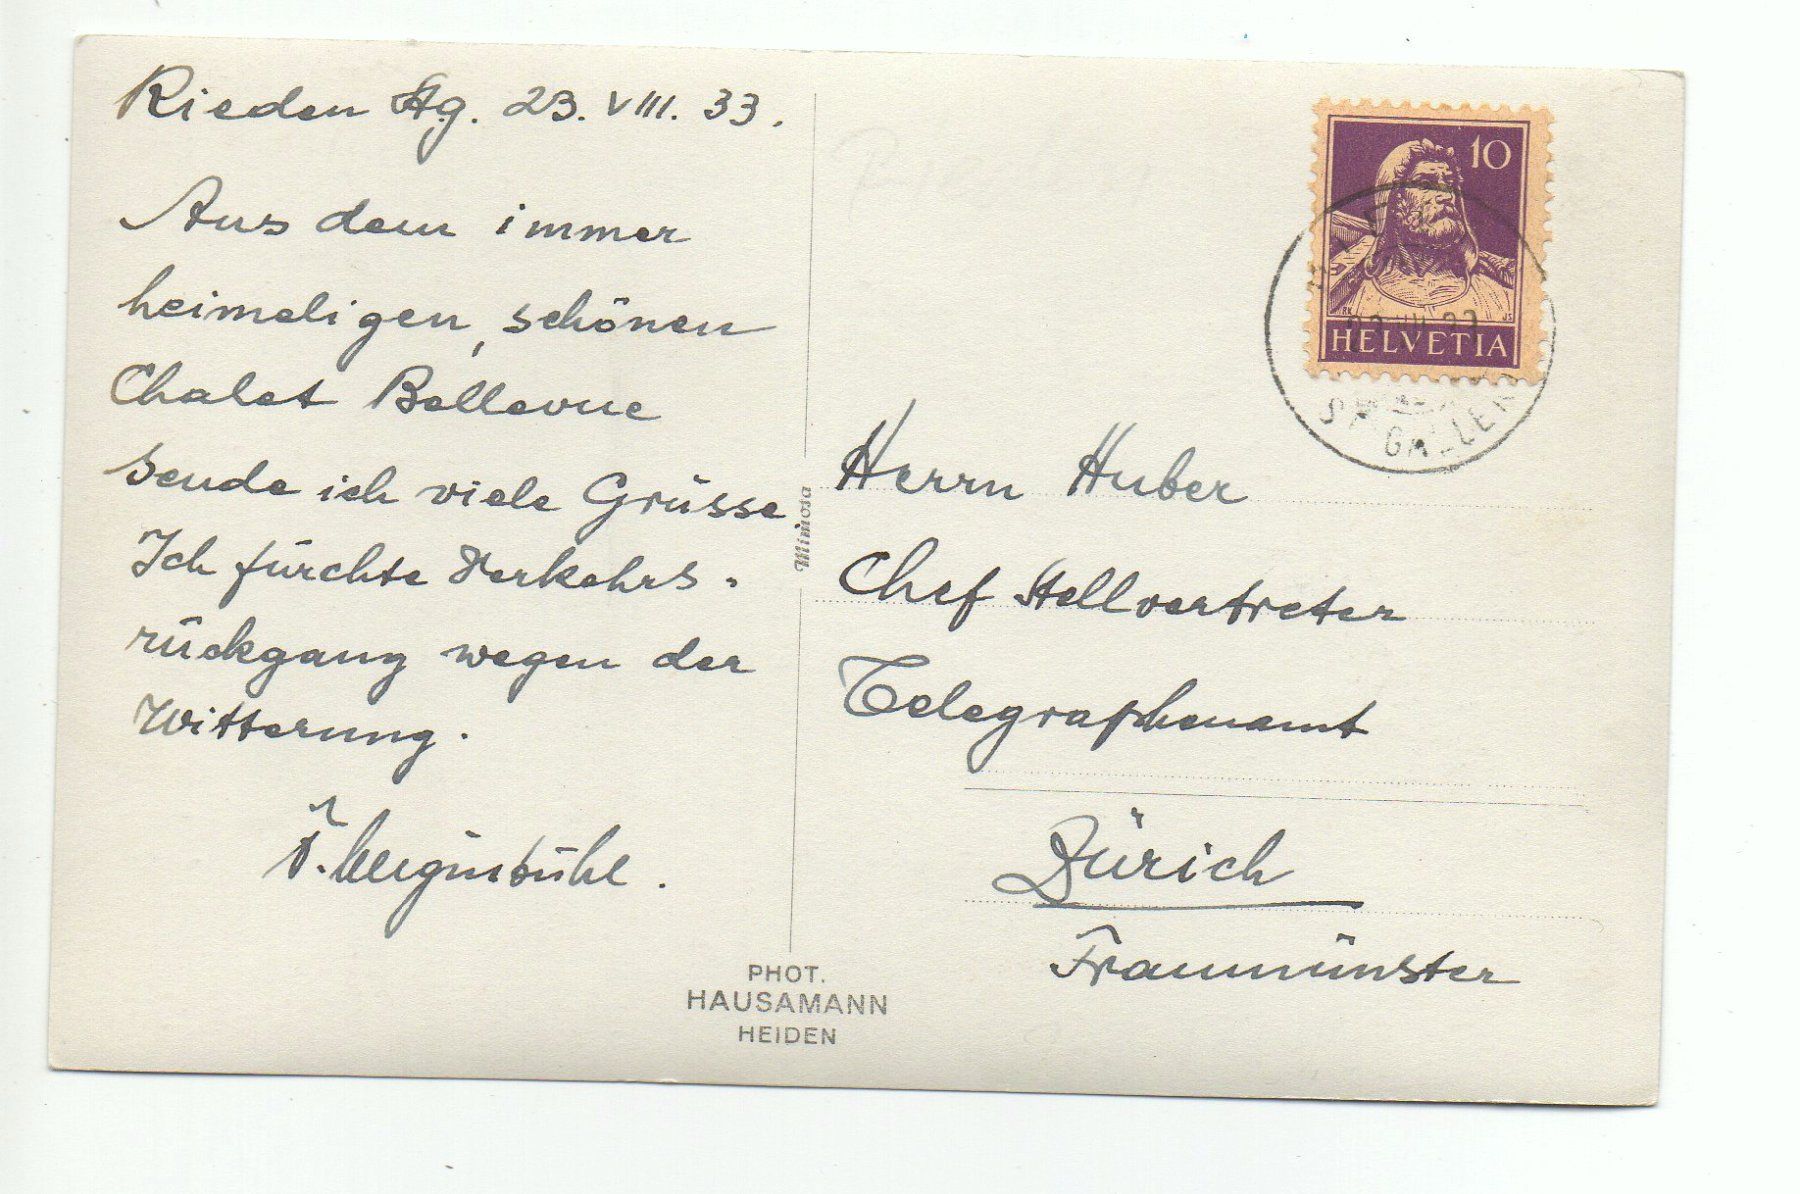 Rieden Stg. 23. VIII. 33.
Aus dem immer
heimeligen, schönen
Chalet Bellevue
sende ich viele Grüsse.
Ich fürchte Verkehrs-
rückgang wegen der
Witterung.
10
HELVETIA
ST GALLEN
Herrn Huber
Chef Stellvertreter
Telegraphenamt
Zürich
Fraumünster
Mimosa
PHOT.
HAUSAMANN
HEIDEN